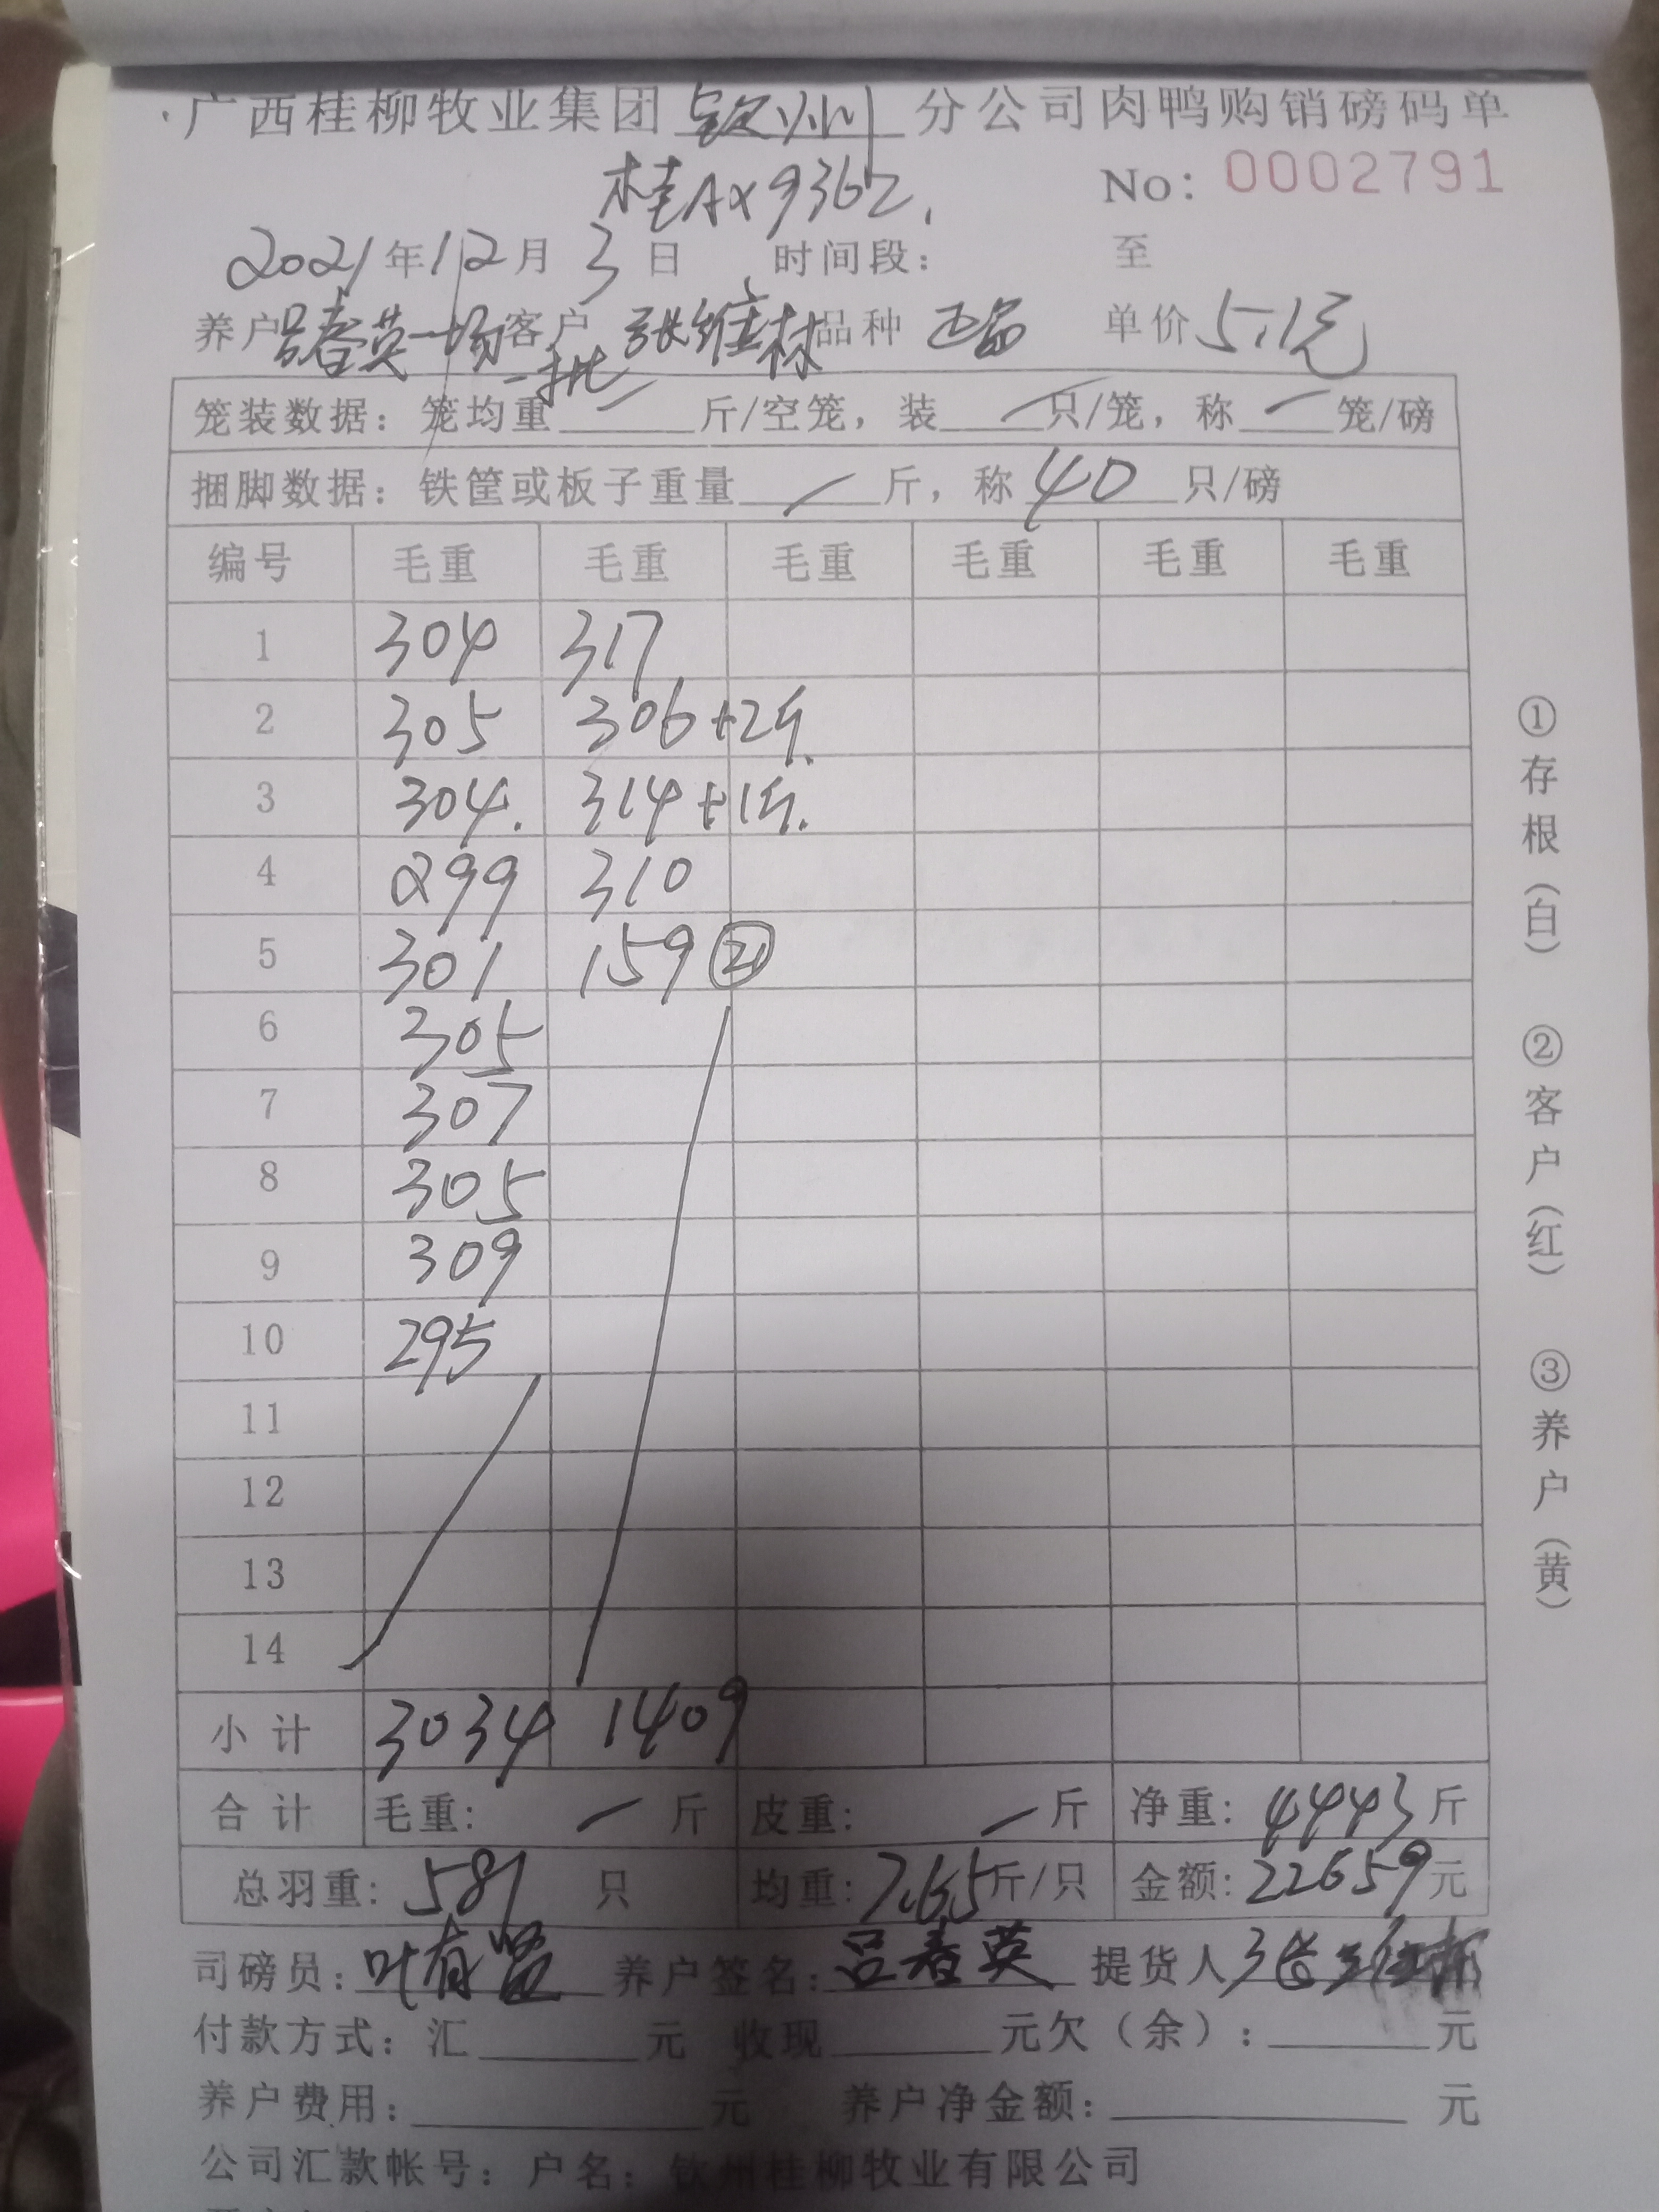 广西桂柳牧业集团钦州分公司肉鸭购销磅码单
桂AX9362. No: 0002791
2021年12月3日 时间段: 至
养户吕春英一场一批 客户 张维林 品种 单价5.1元
笼装数据: 笼均重 — 斤/空笼, 装 — 只/笼, 称 — 笼/磅
捆脚数据: 铁筐或板子重量 — 斤, 称 40 只/磅
编号 毛重 毛重 毛重 毛重 毛重 毛重
1 304 317
2 305 306+2斤.
3 304. 314+1斤.
4 299 310
5 301 159 ㉑
6 305
7 307
8 305
9 309
10 295
11
12
13
14
小计 3034 1409
合计 毛重: — 斤 皮重: — 斤 净重: 4443斤
总羽重: 581 只 均重: 7.65斤/只 金额: 22659元
司磅员: 叶有 养户签名: 吕春英 提货人 张维林
付款方式: 汇 元 收现 元欠(余): 元
养户费用: 元 养户净金额: 元
公司汇款帐号: 户名: 钦州桂柳牧业有限公司
①存根(白) ②客户(红) ③养户(黄)